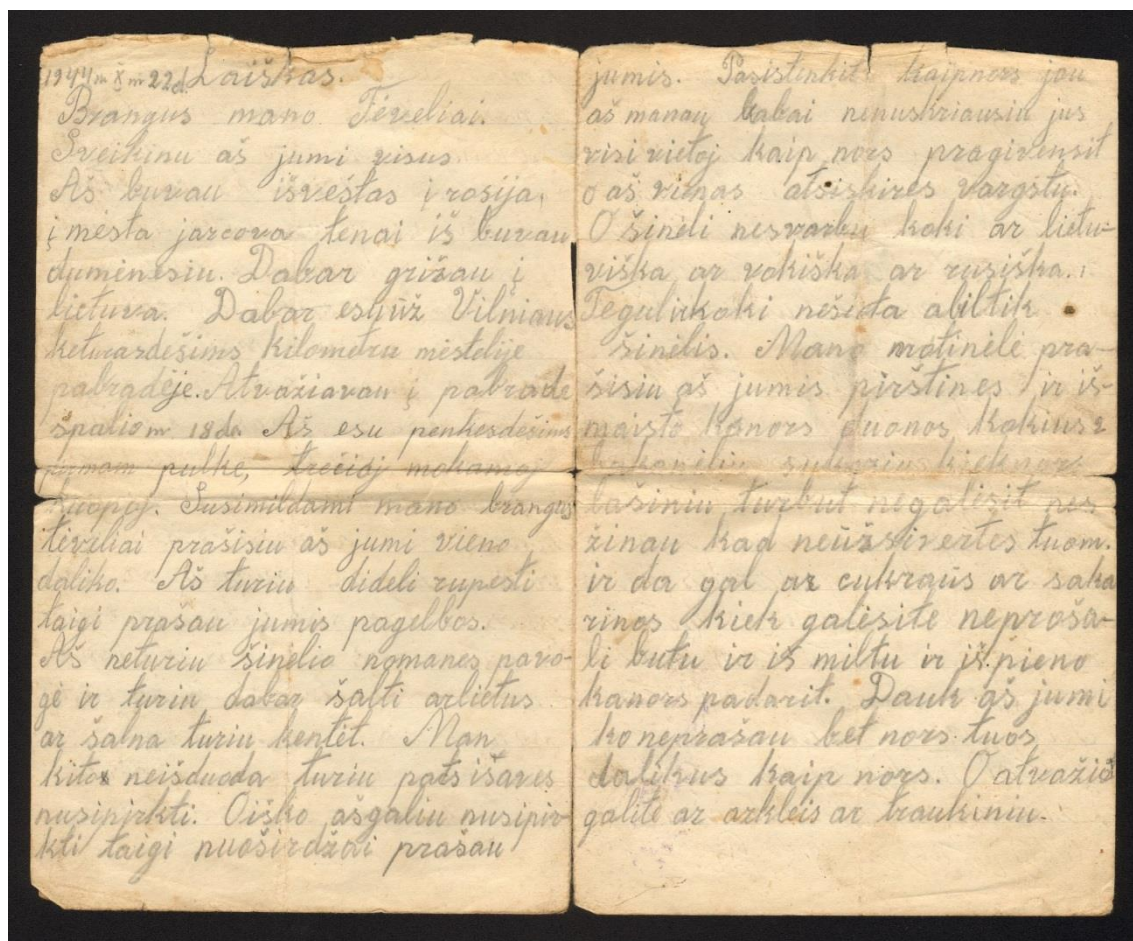 1944 m X m 22d Laiškas.
Brangus mano Tėveliai.
Sveikinu aš jumi visus.
Aš buvau išveštas į rosija,
į mėsta jarcova tenai iš buvau
dumėnesiu. Dabar grižau į
lietuva. Dabar esu už Vilniaus
keturasdešims kilometru mėstelije
pabradėje. Atvažiavau į pabrade
spalio m 18da Aš esu penkesdešims
pulke, trečioj mokamoj
kuopoj. Susimildami mano brangus
tėvėliai prašisiu aš jumi vieno
daliko. Aš turiu dideli rupesti
taigi prašau jumis pagelbos.
Aš neturiu šinelio nomanes pavo-
gė ir turiu dabar šalti arlietus
ar šalna turiu kentėt. Man
kito neišduoda turiu pats išaves
nusipirkti. Oiško ašgaliu nusipir-
kti taigi nuoširdžai prašau
jumis. Pasistenkit kaipnors jau
aš manau labai nenuskriausiu jus
visi vietoj kaip nors pragivensit
o aš vienas atsiskires vargstu.
O šineli nesvarbu koki ar lietu-
viška ar vokiška ar rusiška.
Tegul koki nešiota abiltik
šinėlis. Mano motinėlė pra-
šisiu aš jumis pirštines ir iš-
maisto kanors duonos kokius 2
lašiniu turbut negalėsit nes
žinau kad neužsivertes tuom.
ir da gal ar cukraus ar saka
rinos kiek galėsite neproša-
li butu ir iš miltu ir iš pieno
kanors padarit. Dauk aš jumi
ko neprašau bet nors tuos
dalikus kaip nors. O atvažio
galite ar arkleis ar traukiniu.